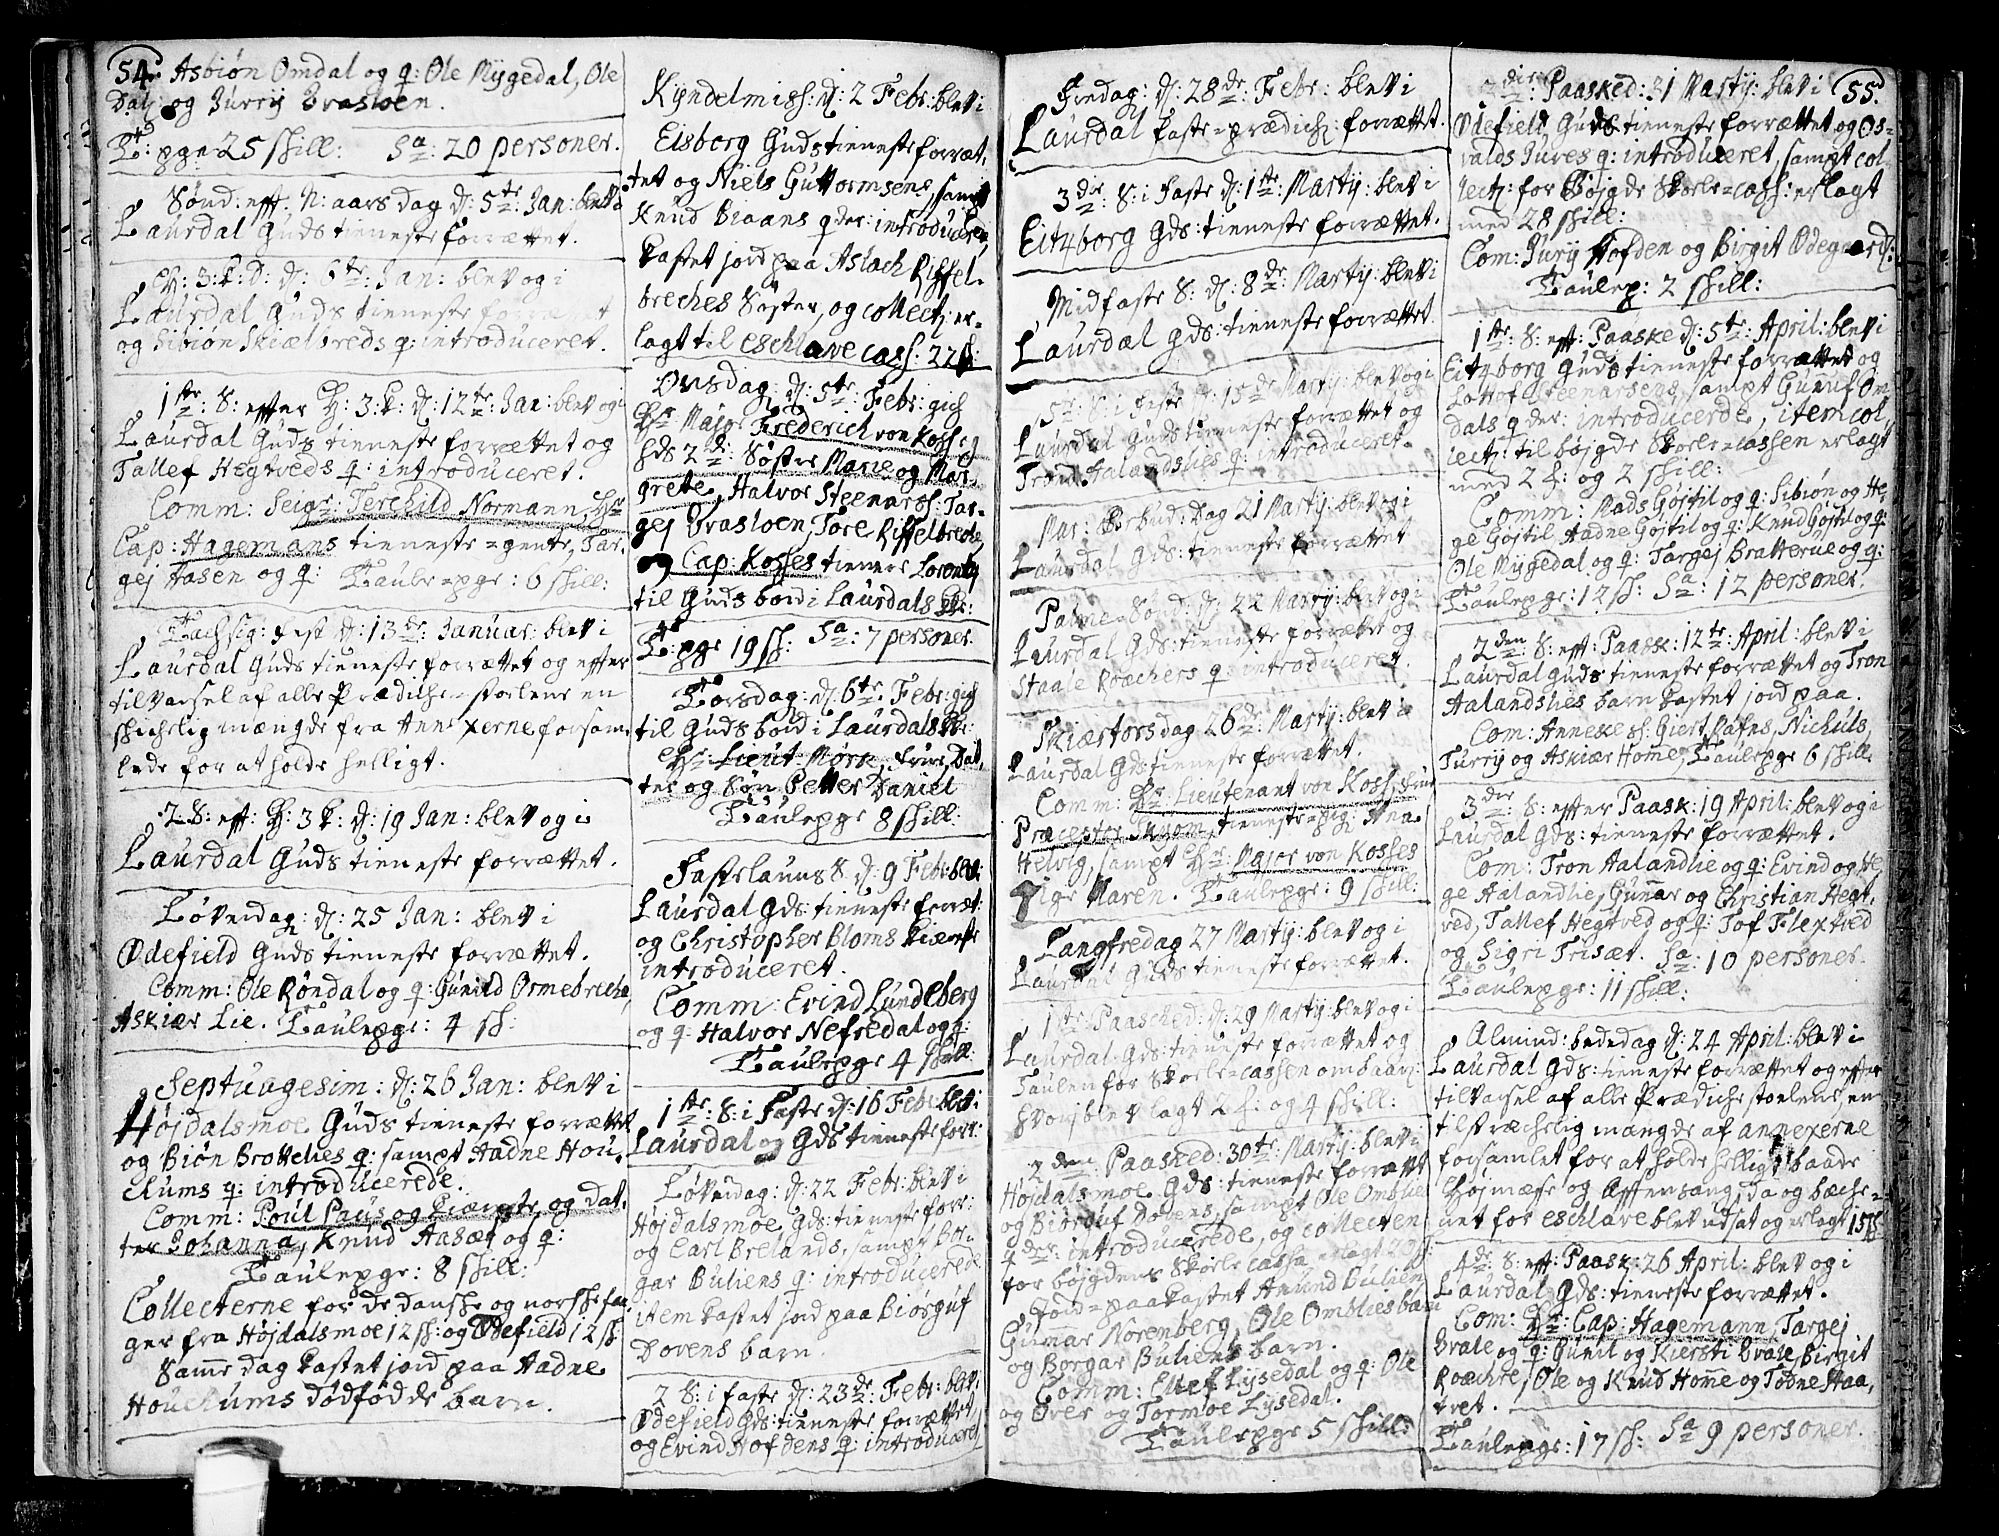 54. Asbiøn Omdal og q: Ole Nygedal, Ole
Dalj og Jurrij Brasloen.
pge 25 skill: Sa: 20 personer.
Sønd: eft. N: aars dag d: 5te Jan: blev i
Laurdal Guds tieneste forrættet.
H: 3: K: D: d: 6te: Jan: blev og i
Laurdal Guds tieneste forrættet
og Sibiøn Skiælbreds q: introduceret.
1te: S: effter H: 3: K: d: 12te: Jan: blev og i
Laurdal Guds tieneste forrættet og
Tallef Hegtveds q: introduceret.
Comm: Seigr: Terchild Normann, Hr
Cap: Hagemans tieneste=gente, Tar-
gej Aasen og q: Taulepge: 6 skill:
Tachsig: fest d: 13de: Januar: blev i
Laurdal Guds tieneste forrættet og effter
tilvarsel af alle Prædiche=stoelene en
skichelig mængde fra Annexerne forsam-
lede for at holde helligt.
2 S: eff: H: 3 K: d: 19 Jan: blev og i
Laurdal Guds tieneste forrættet.
Løverdag: d: 25 Jan: blev i
Ødefield Guds tieneste forrættet.
Comm: Ole Røndal og q: Gunild Ormebreche,
Askiær Lie. Taulepge: 4 sh:
Septuagesim: d: 26 Jan: blev i
Højdalsmoe Guds tieneste forrættet
og Biøn Brottelies q: sampt Aadne Hou-
chums q: introducerede.
Comm: Poul Paus og Kiæreste og dat-
ter Johanna, Knud Aasæt og q:
Taulepge: 8 skill:
Collecterne for de danske og norske fan-
ger fra Højdalsmoe 12 sh: og Ødefield 12 sh
Samme dag kastet jord paa Aadne
Houchums dødfødde barn.
Kyndelmiss: d: 2 Febr: blev i
Eisborg Guds tieneste forræt-
tet og Niels Guttormsens sampt
Knud Biaans qder: introducerede,
kastet jord paa Aslach Riffel-
breches Søster, og collectj er-
lagt til eschlave cass: 22 sh:
Onsdag d: 5te Febr: gich
Hr: Major Frederich von Koss og
hds 2de: Søstre Marie og Mar-
grete, Halvor Steenarss: Tar-
gej Brasloen, Tore Riffelbreche,
og Cap: Kosses tienere Lorentz
til Guds bord i Laurdals K:
pge 19 sh: Sa: 7 personer.
Torsdag: d: 6te: Febr: gich
til Guds bord i Laurdals K:
Hr: Lieut. Mørk, Frue, Dat-
ter og Søn Petter Daniel
Taulepge 8 skill:
Fastelauns S. d: 9 Febr: blev i
Laurdal Gds: tieneste forræt:
og Christopher Bloms Kiæreste
introduceret.
Comm: Evind Lundeberg
og q: Halvor Nefredal og q:
Taulepge 4 skill:
1te: S: i Faste d: 16 Febr: blev i
Laurdal og Gds tieneste forr:
Løverdag: d: 22 Febr: blev i
Højdalsmoe Gds: tieneste forr:
og Carl Brelands, sampt Bor-
gar Buliens q: introducerede
item kastet jord paa Biørguf
Dovens barn.
2 S: i faste d: 23de: Febr: blev i
Ødefield Gds: tieneste forrættet,
og Evind Hofdens q: introduceret
Fredag: d: 28de: Febr: blev i
Laurdal faste=prædich: forrættet.
3die: S: i Faste d: 1te: Martij: blev i
Eitzborg Gds: tieneste forrættet.
Midfaste S: d: 8de: Martij: blev i
Laurdal Gds: tieneste forrættet.
5te: S: i Faste d: 15de Martij: blev og i
Laurdal Guds tieneste forrættet og
Trond Aalandslies q: introduceret.
Mar: Borbud: Dag 21 Martij: blev og i
Laurdal Gds: tieneste forrættet
Palme=Sønd: d: 22 Martij: blev og i
Laurdal Gds: tieneste forrættet og
Staale Roachers q: introduceret.
Skiærtorsdag 26de: Martij: blev i
Laurdal Gds tieneste forrættet.
Comm: Hr: Lieutenant von Koss, Frue
Præceptor Skyom, tieneste=pig:
Helvig, sampt Hr: Major von Kosses
Pige Maren. Taulepge: 9 skill:
Langfredag 27 Martij: blev og i
Laurdal Guds tieneste forrættet.
1te: Paasched: d: 29 Martij: blev og i
Laurdal Gds: tieneste forrættet og
Taulen for Skoele=cassen ombaaren:
hvorj blev lagt 2 f: og 4 skill:
2den: Paasked: 30te: Martij: blev i
Højdalsmoe Gds: tieneste forrættet
og Biørguf Dovens, sampt Ole Omblie
qder: introducerede, og collecten
for bøjgdens Skoele cassa erlagt 20 sh:
Jord=paakastet Amund Bulien
Gunnar Norenberg, Ole Omblies barn
og Borgar Buliens barn.
Comm: Ellef Lysedal og q: Ole
og Over og Tormoe Lysedal.
Taulepge 5 skill:
3die: Paasked: 31 Martij: blev i 55.
Ødefield Guds tieneste forrættet og Os-
valds Jures q: introduceret, sampt col-
lectj: for Bøjgde Skoele=cass: erlagt
med 28 skill:
Com: Jurij Hofden og Birgit Ødegaard:
Taulep: 2 skill:
1te: S: eff: Paaske d: 5te: April: blev i
Eitzborg Guds tieneste forrættet og
Lottof Steenarsens, sampt Gunuf Om-
dals qder: introducerde, item col-
lectj: til bøjgde Skoele=cassen erlagt
med 2 f: og 2 skill:
Comm: Mads Gøjtil og q: Sibiøn og He-
ge Gøjtil, Aadne Gøjtil og q: Knud Gøjtil og q:
Ole Nygedal og q: Targej Bratterue og q:
Taulepge: 12 sh: Sa: 12 personer.
2den: S: eff: Paask: 12te: April: blev i
Laurdal Guds tieneste forrættet og Tron
Aalandslies barn kastet jord paa.
Com: Anneke sl: Giert Rafns, Nichuls,
Turrij og Askiær Home, Taulepge 6 skill.
3die: S: effter Paask: 19 April: blev og i
Laurdal Gds: tieneste forrættet.
Com: Tron Aalandlie og q: Evind og He-
ge Aalandlie, Gunnar og Christian Hegt-
ved, Tallef Hegtved og q: Tof Flextved
og Sigri Trisæt. Sa: 10 personer.
Taulepge: 11 skill:
Almind: bededag d: 24 April: blev i
Laurdal Gds: tieneste forrættet og effter
tilvarsel af alle Prædichestoelene, en
tilstræchelig mængde af annexerne
forsamlet for at holde helligt, baade
Højmæsse og Afftensang, da og bæche-
net for eschlave blev udsat og erlagt 15 sh:
4de: S: eff: Paask: 26 April: blev og i
Laurdal Gds: tieneste forrættet.
Com: Hr: Cap: Hagemann, Targej
Brale og q: Gunil og Kiersti Brale, Birgit
Roachre, Ole og Knud Home og Todne Haa-
tvet.
Taulepge: 17 sh: Sa 9 personer.